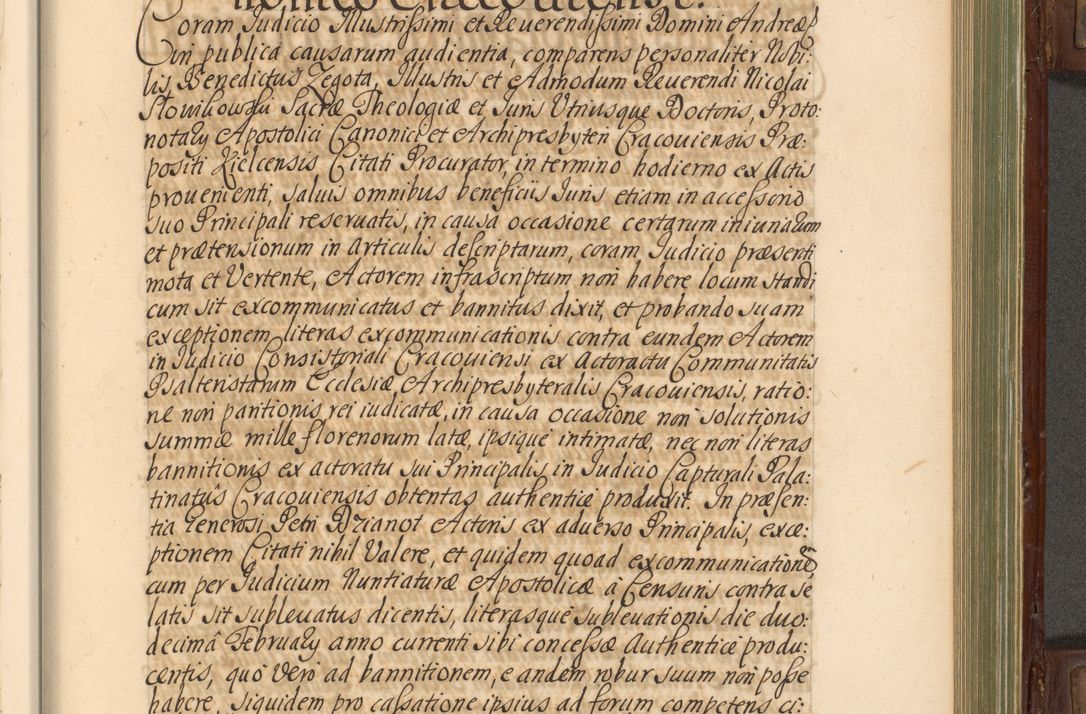 Coram Judicio Illustrissimi et Reuerendissimi Domini Andreæ
in publica causarum audientia, comparens personaliter Nobi:
lis, Benedictus Zegota, Illustris et Admodum Reuerendi Nicolai
Słowikowski Sacræ Theologiæ et Juris Utriusque Doctoris, Proto:
notarij Apostolici Canonici et Archipresbyteri Cracouiensis Præ:
positi Kielcensis Citati Procurator, in termino hodierno ex Actis
prouenienti, saluis omnibus beneficijs Juris etiam in accessorio
suo Principali reseruatis, in causa occasione certarum iniuriarum
et prætensionum in Articulis descriptarum, coram Judicio præsenti
mota et Vertente, Actorem infrascriptum non habere locum standi
cum sit excommunicatus et bannitus dixit, et probando suam
exceptionem literas excommunicationis contra eundem Actorem
in Judicio Consistoriali Cracouiensi ex Actoractu Communitatis
Psalteristarum Ecclesiæ Archipresbyteralis Cracouiensis, ratio:
ne non paritionis rei iudicatæ, in causa occasione non solutionis
summæ mille florenorum latæ, ipsique intimatæ, nec non literas
bannitionis ex actoratu sui Principalis in Judicio Capturali Pala:
tinatûs Cracouiensis obtentas authentice produxit. In præsen:
tia Generosi Petri Drianot Actoris ex aduerso Principalis, exce:
ptionem Citati nihil Valere, et quidem quoad excommunicationem
cum per Judicium Nuntiaturæ Apostolicæ à Censuris contra se
latis sit subleuatus dicentis, literasque subleuationis die duo:
decimâ February anno currenti sibi concessæ Authentice produ:
centis, quo Vero ad bannitionem, eandem robur suum non posse
habere, siquidem pro cassatione ipsius ad forum competens ci: